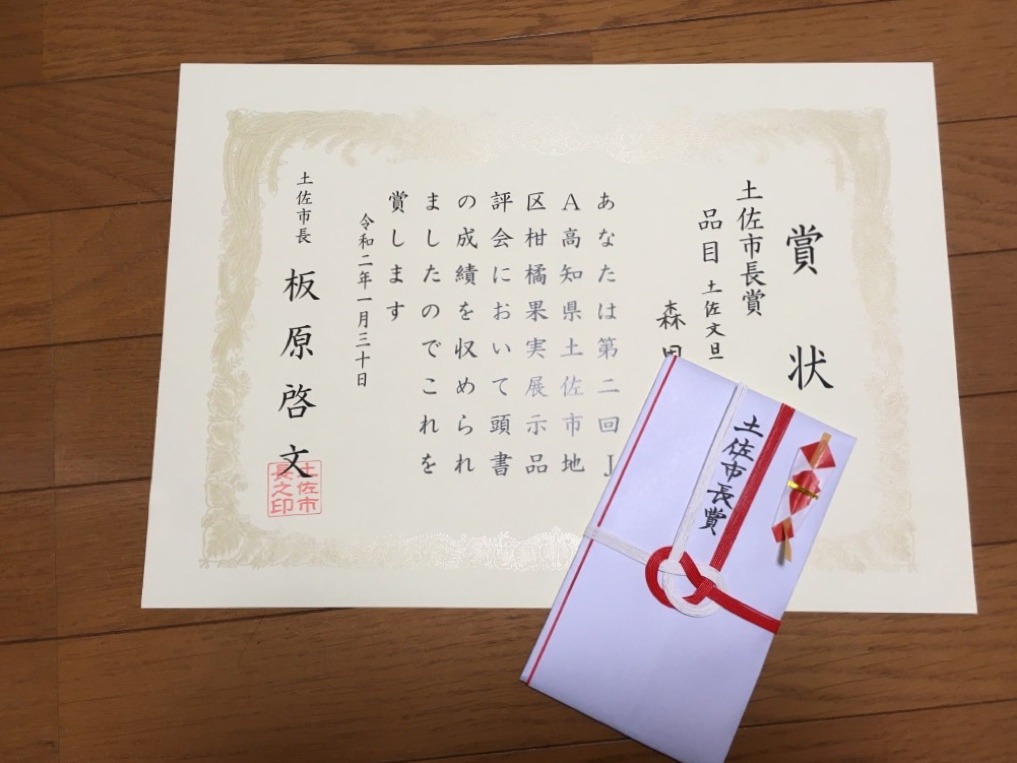 賞状
土佐市長賞
品目 土佐文旦
森
あなたは第二回J
A高知県土佐市地
区柑橘果実展示品
評会において頭書
の成績を収められ
ましたのでこれを
賞します
令和二年一月三十日
土佐市長 板原啓文
土佐市
長之印
土佐市長賞